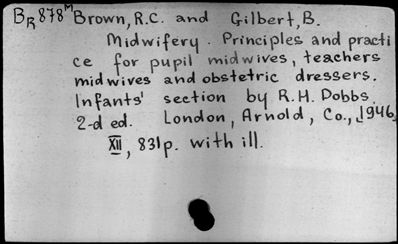 BR878M Brown, R.C. and Gilbert, B.
Midwifery. Principles and practi
ce for pupil midwives, teachers
midwives and obstetric dressers.
Infants' section by R.H. Dobbs.
2-d ed. London, Arnold, Co., [1946.
XII, 831p. with ill.